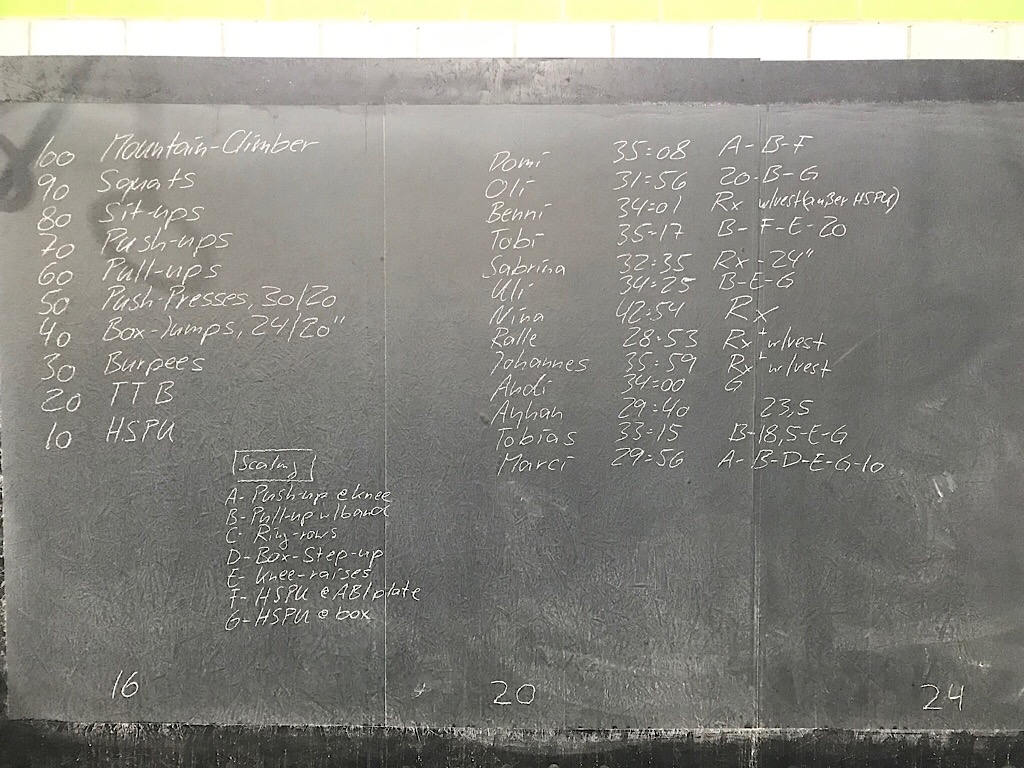 100 Mountain-Climber
90 Squats
80 Sit-ups
70 Push-ups
60 Pull-ups
50 Push-Presses, 30/20
40 Box-Jumps, 24/20"
30 Burpees
20 TTB
10 HSPU
Scaling
A- Push-up @ knee
B- Pull-up w/band
C- Ring-rows
D- Box-Step-up
E- Knee-raises
F- HSPU @ AB/plate
G- HSPU @ box
Domi 35:08 A-B-F
Oli 31:56 20-B-G
Benni 34:01 Rx w/vest (außer HSPU)
Tobi 35:17 B-F-E-20
Sabrina 32:35 Rx-24"
Uli 34:25 B-E-G
Nina 42:54 Rx
Ralle 28:53 Rx+ w/vest
Johannes 35:59 Rx+ w/vest
Andi 34:00 G
Ayhan 29:40 23,5
Tobias 33:15 B-18,5-E-G
Marci 29:56 A-B-D-E-G-10
16 20 24